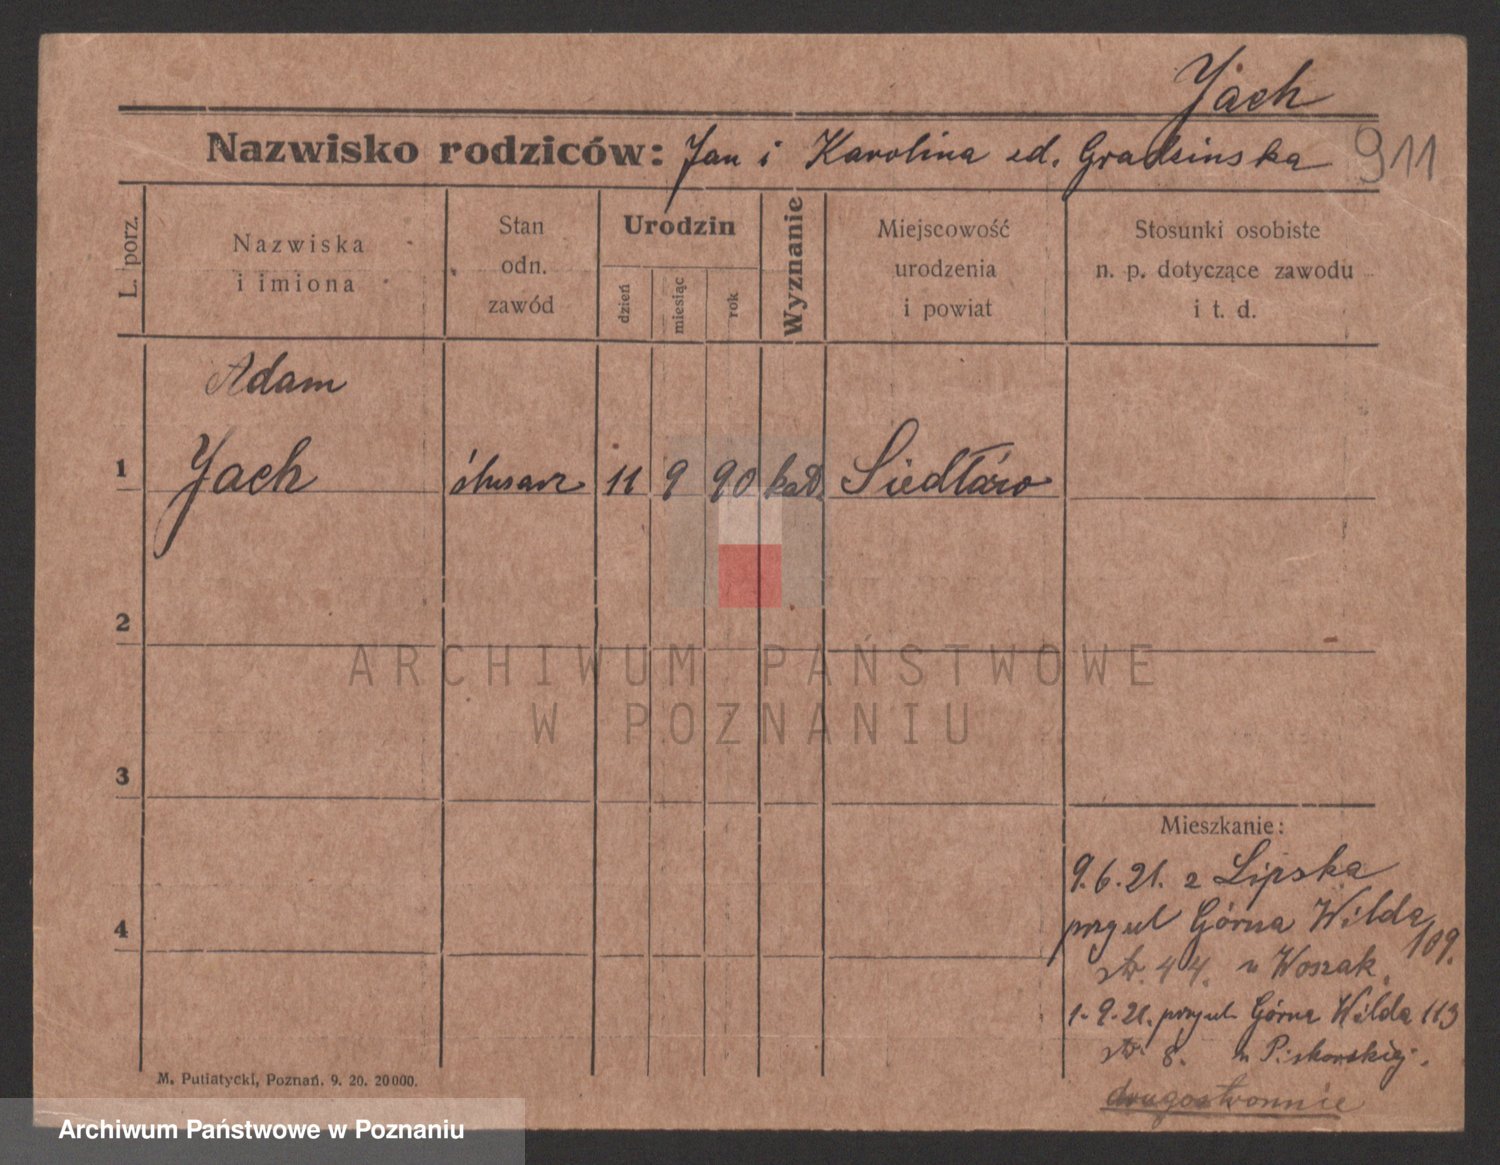 Yach
Nazwisko rodziców: Jan i Karolina ed. Gradzinska 911
L. porz.
Nazwiska
i imiona
Stan
odn.
zawód
Urodzin
dzień
miesiąc
rok
Wyznanie
Miejscowość
urodzenia
i powiat
Stosunki osobiste
n. p. dotyczące zawodu
i t. d.
Adam
1 Yach ślusarz 11 9 90 kat. Siedłáro
2
3
4
ARCHIWUM PAŃSTWOWE
W POZNANIU
Mieszkanie:
9.6.21. z Lipska
przy ul Górna Wilda 109.
str. 44. u Woszak.
1.9.21. przy ul. Górna Wilda 113
str. 8. u Piskorskiej.
drugostronnie
M. Putiatycki, Poznań. 9. 20. 20000.
Archiwum Państwowe w Poznaniu